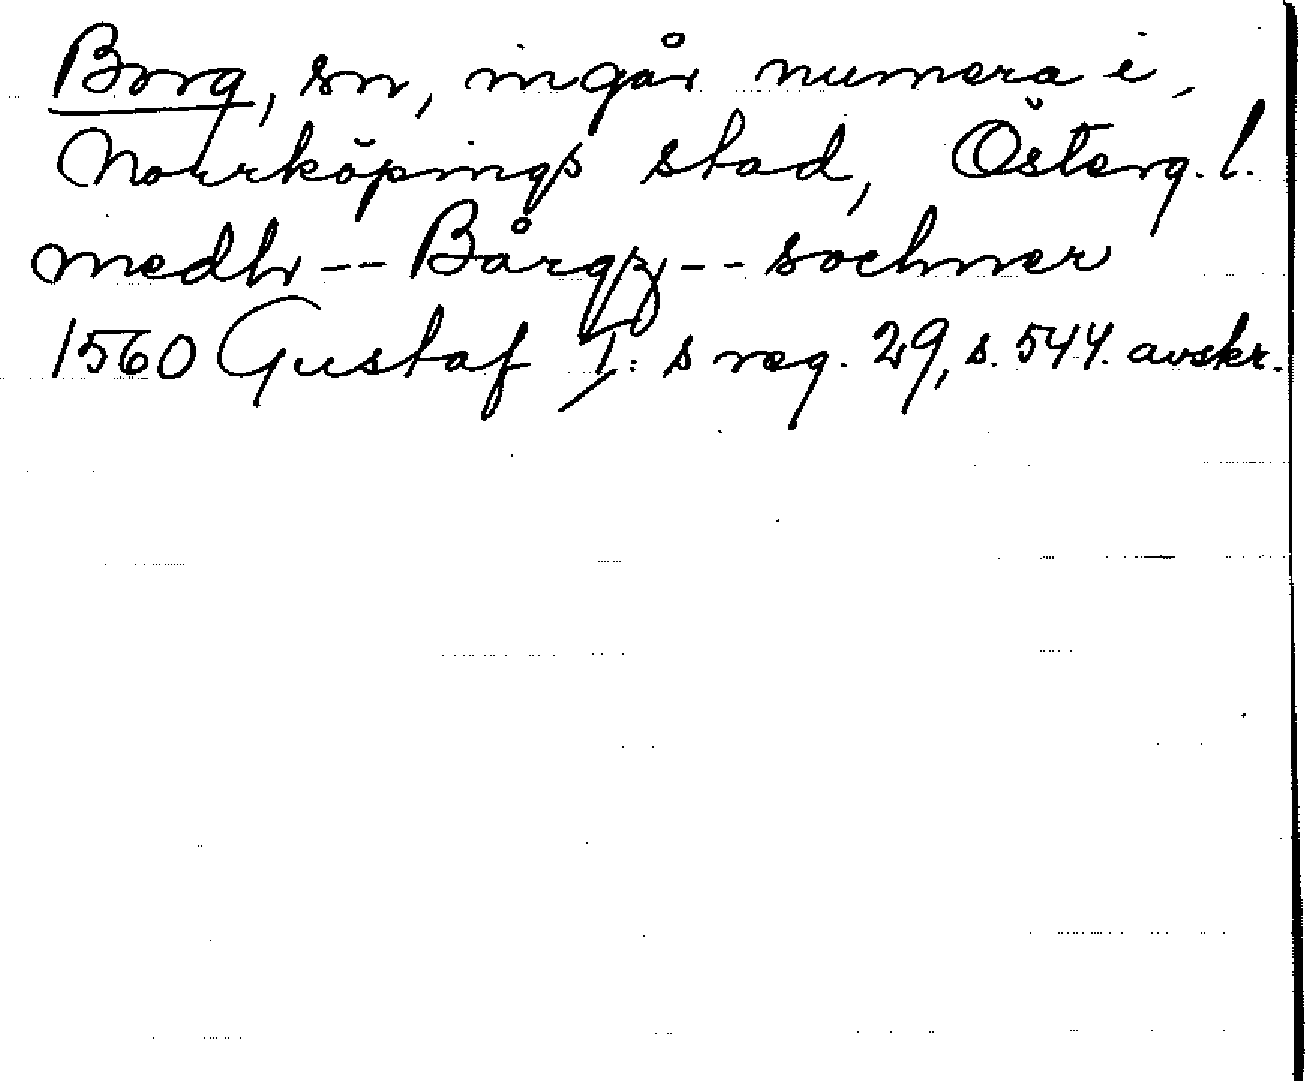 Borg, sn, ingår numera i
Norrköpings stad, Österg. l.
medh -- Bårgz -- sochner
1560 Gustaf I:s reg. 29, s. 544. avskr.